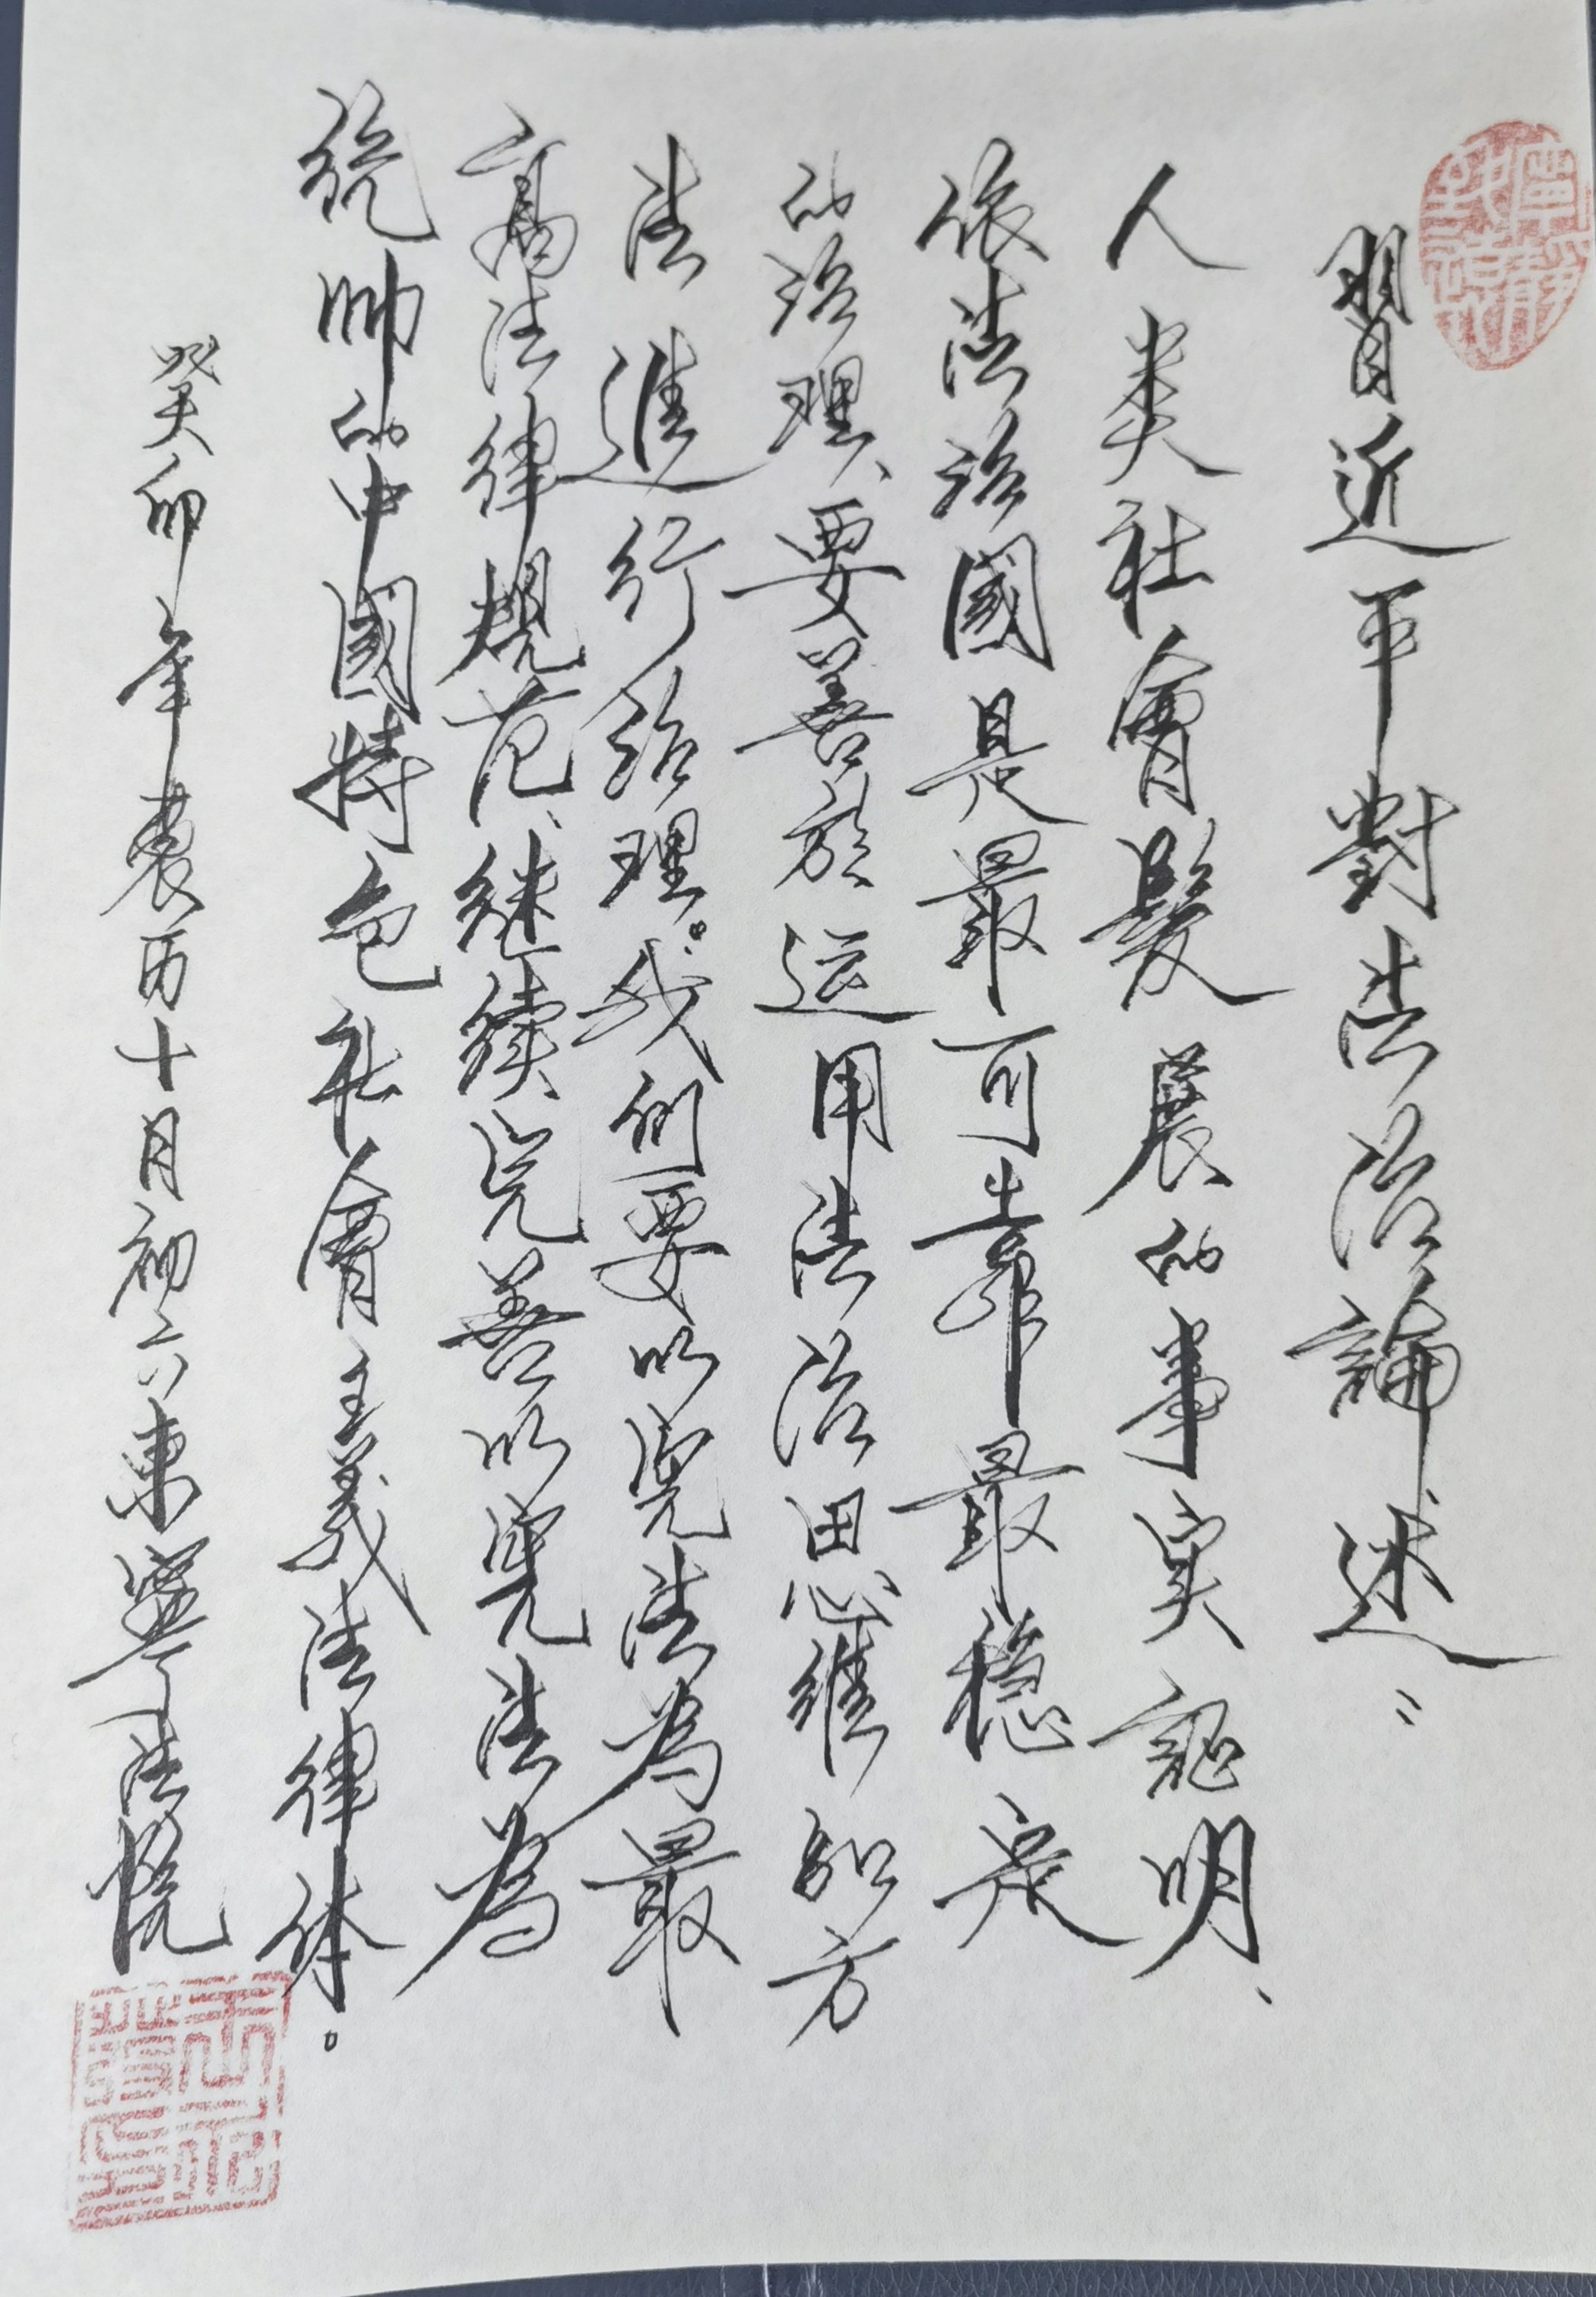 習近平對法治論述：
人类社會髮展的事実証明、
依法治國是最可靠最穏定
的治理、要善於运用法治思維和方
法進行治理。我们要以宪法為最
高法律規范、继續完善以宪法為
统帅的中國特色社會主義法律体。
癸卯年農历十月初六東寧法院